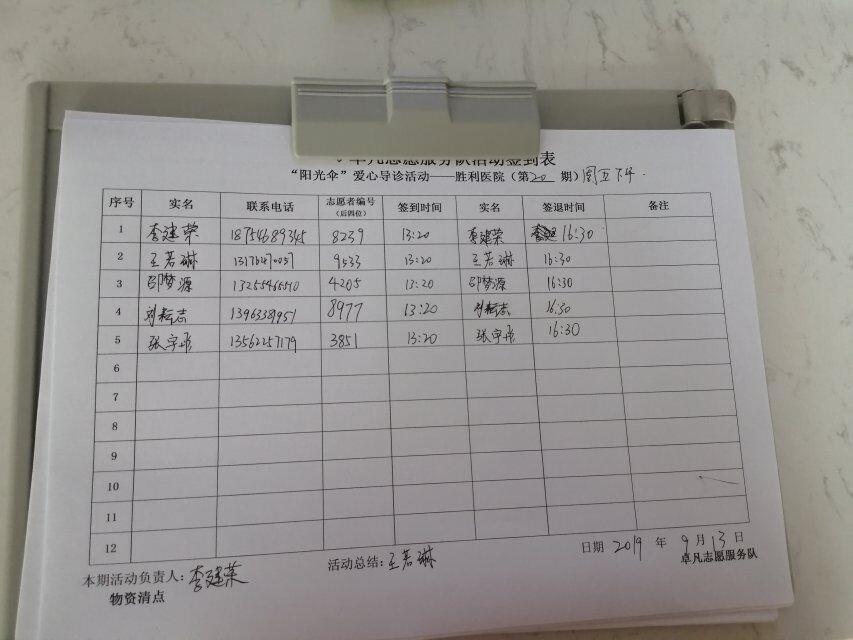 卓凡志愿服务队活动签到表
“阳光伞”爱心导诊活动——胜利医院(第20期)周五下午.
序号 实名 联系电话 志愿者编号(后四位) 签到时间 实名 签退时间 备注
1 李建荣 18754689345 8239 13:20 李建荣 16:30
2 王若琳 9533 13:20 王若琳 16:30
3 邵梦源 13255465510 4205 13:20 邵梦源 16:30
4 8977 13:20 16:30
5 13562257179 3851 13:20 16:30
6
7
8
9
10
11
12
日期 2019 年 9 月 13 日
本期活动负责人:李建荣 活动总结:王若琳 卓凡志愿服务队
物资清点